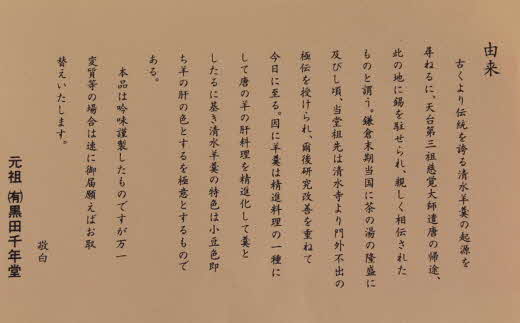 由来
古くより伝統を誇る清水羊羹の起源を
尋ねるに、天台第三祖慈覚大師遣唐の帰途、
此の地に錫を駐せられ、親しく相伝された
ものと謂う。鎌倉末期当国に茶の湯の隆盛に
及びし頃、当堂祖先は清水寺より門外不出の
極伝を授けられ、爾後研究改善を重ねて
今日に至る。因に羊羹は精進料理の一種に
して唐の羊の肝料理を精進化して羹と
したるに基き清水羊羹の特色は小豆色即
ち羊の肝の色とするを極意とするもので
ある。
本品は吟味謹製したものですが万一
変質等の場合は速に御届願えばお取
替えいたします。
敬白
元祖 ㈲黒田千年堂